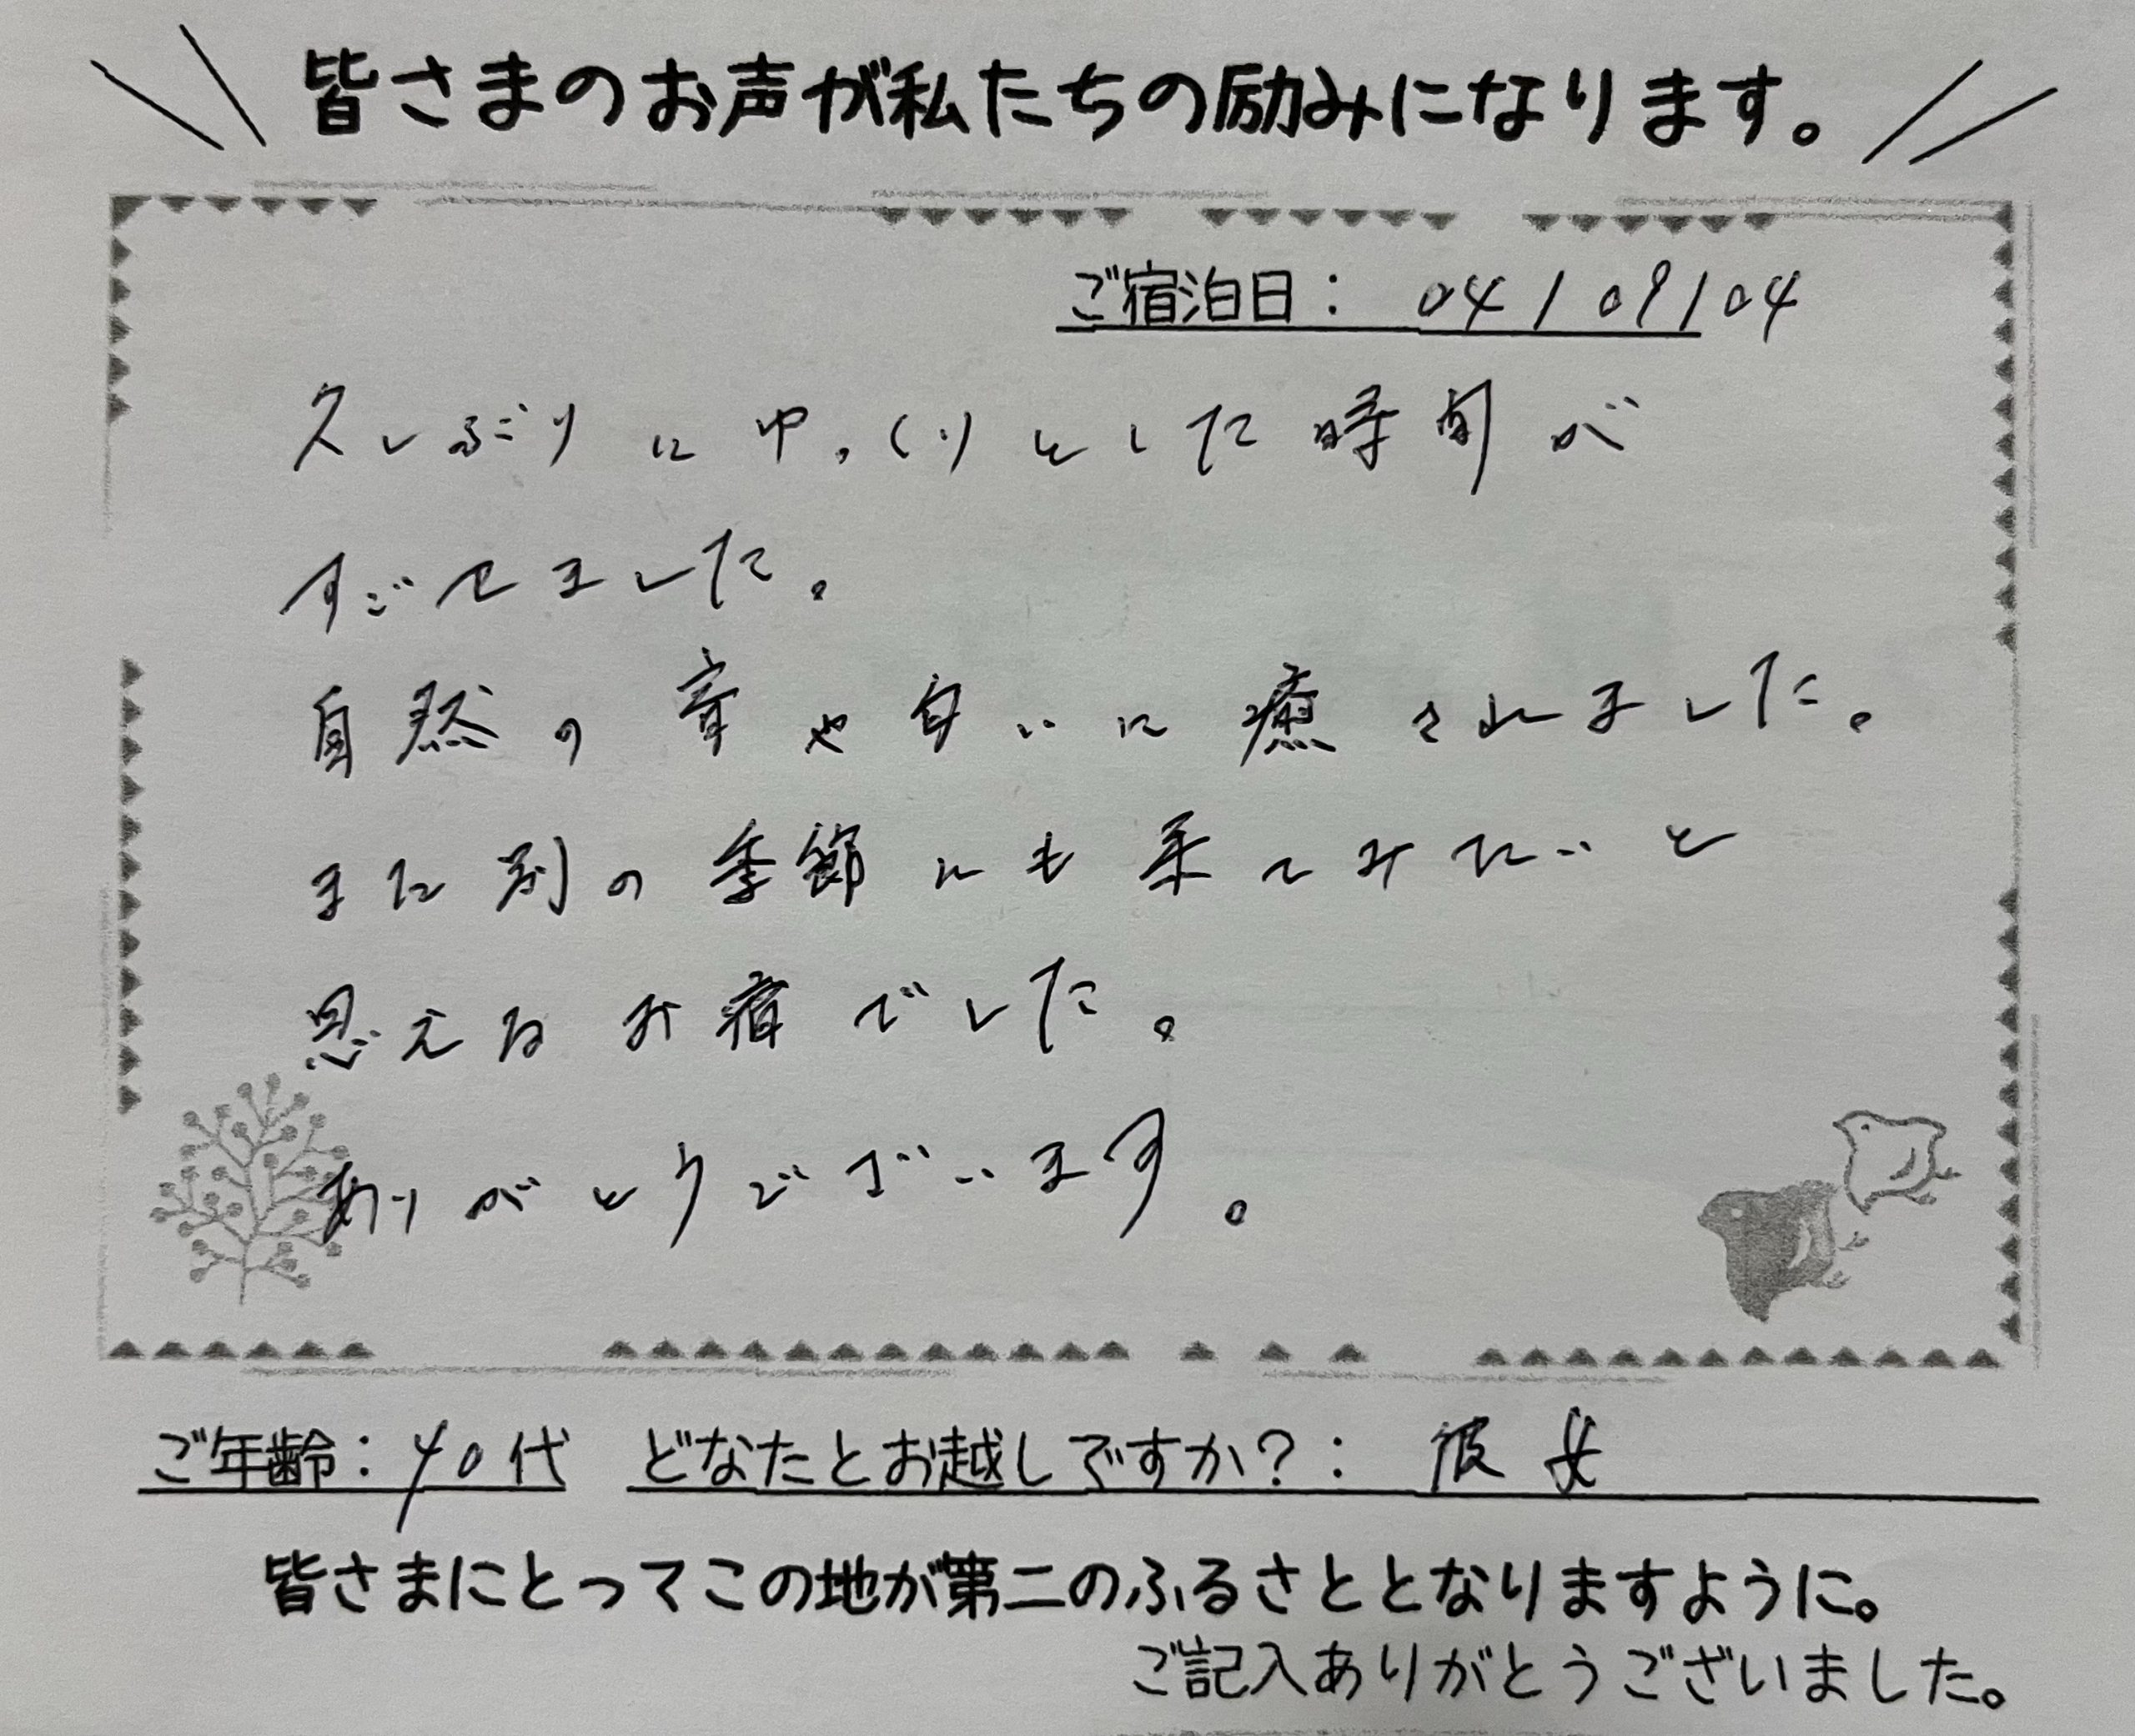 皆さまのお声が私たちの励みになります。
ご宿泊日： 04/09/04
久しぶりにゆっくりとした時間が
すごせました。
自然の音や匂いに癒されました。
また別の季節にも来てみたいと
思えるお宿でした。
ありがとうございます。
ご年齢：40代 どなたとお越しですか？： 彼女
皆さまにとってこの地が第二のふるさととなりますように。
ご記入ありがとうございました。